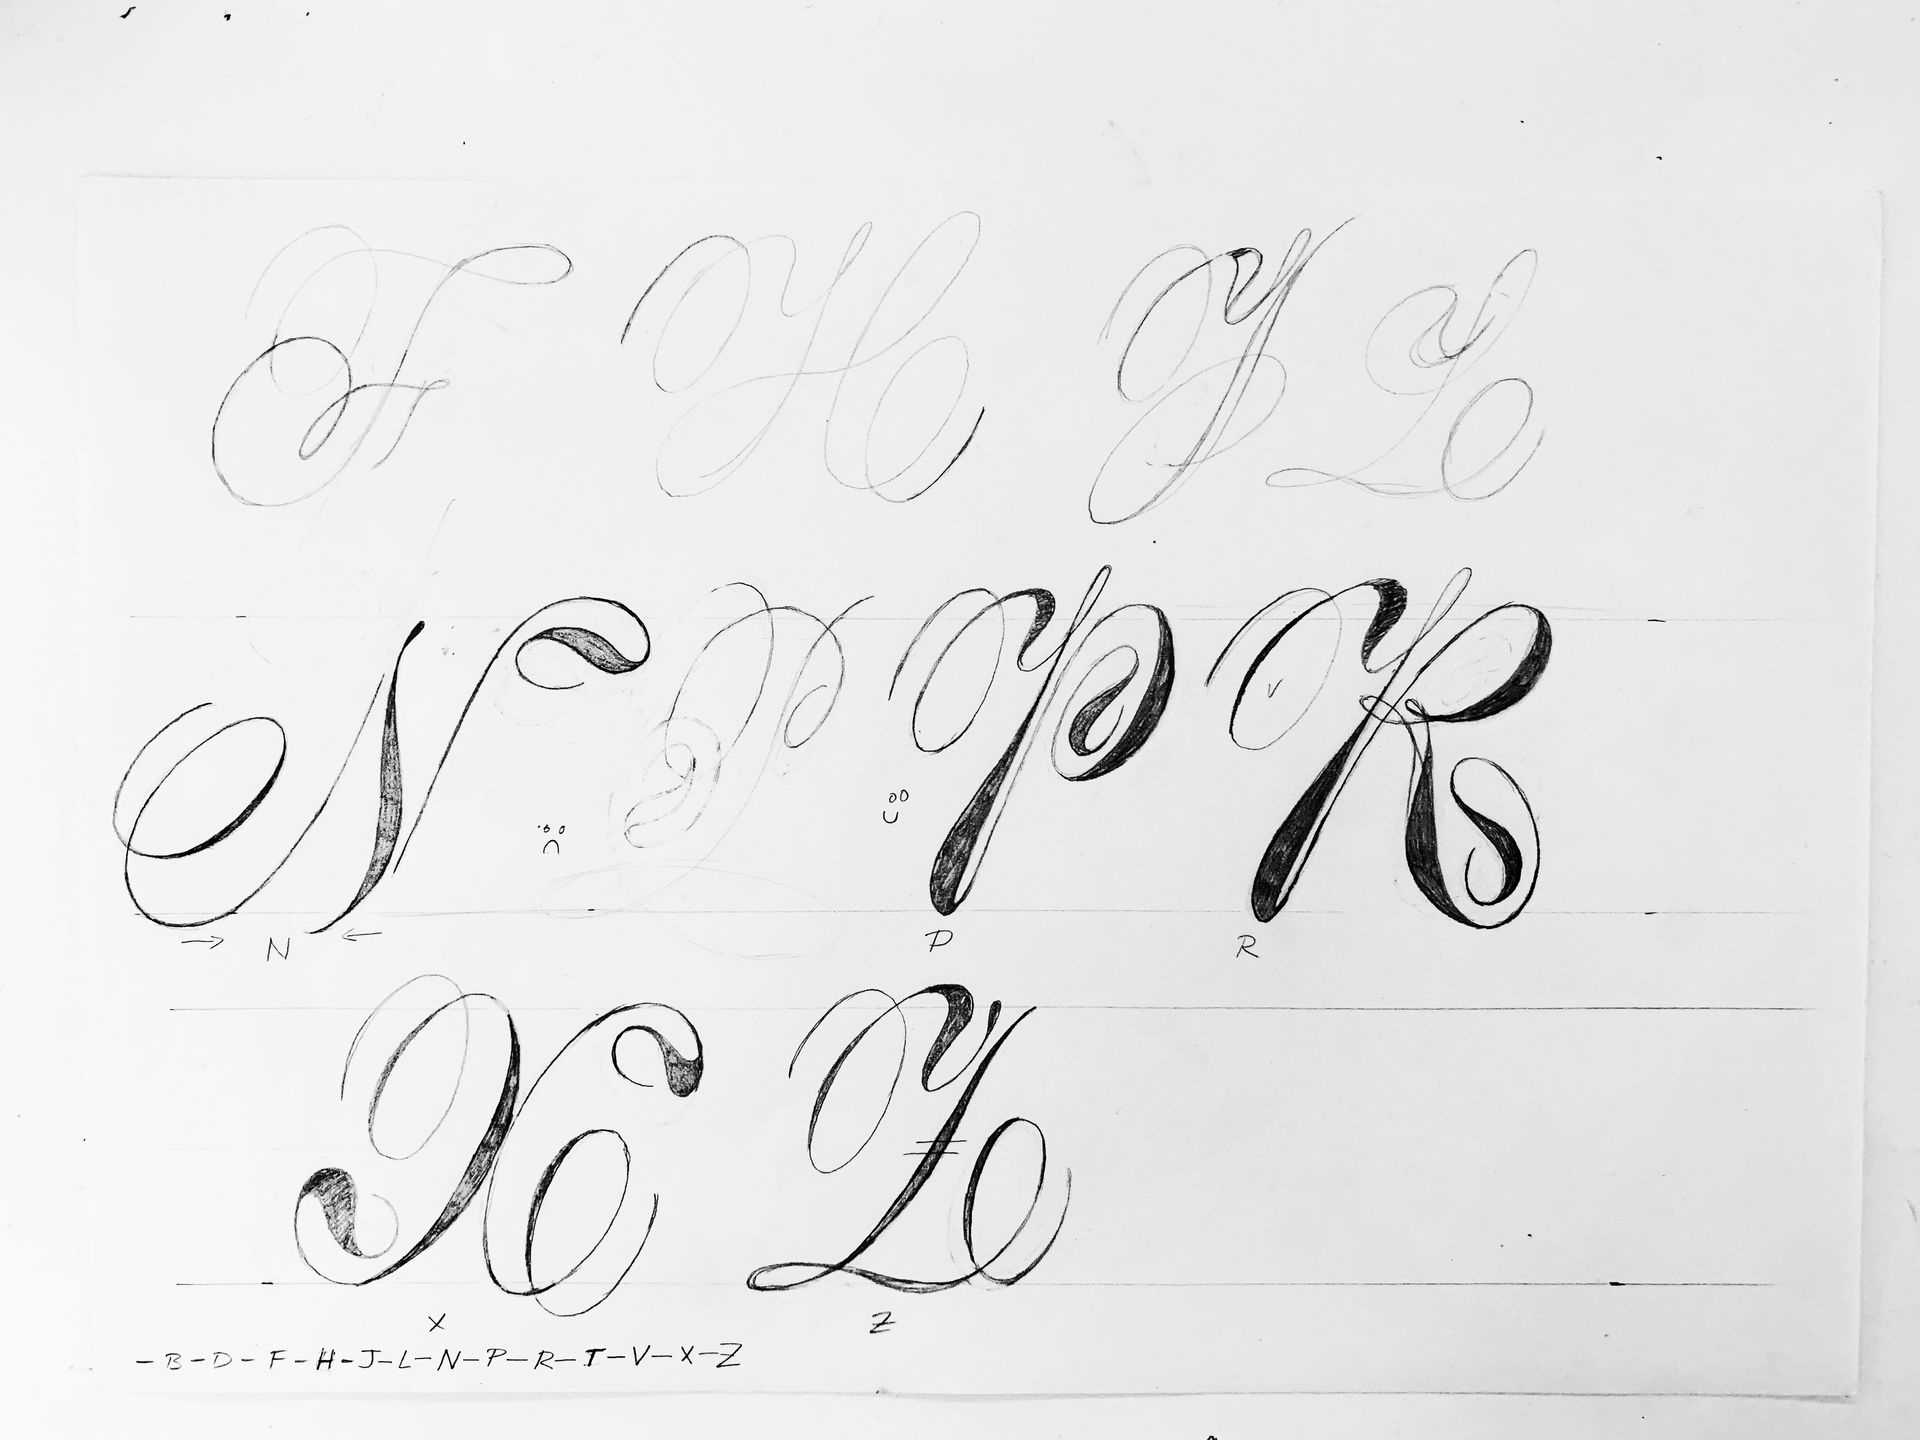 F H
N P R
N P R
X Z
X Z
-B-D-F-H-J-L-N-P-R-T-V-X-Z